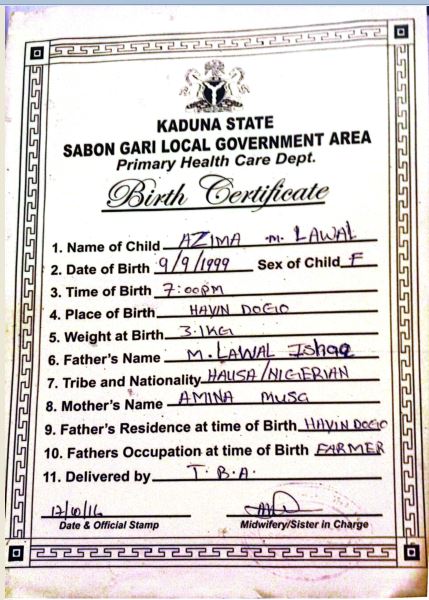 KADUNA STATE
SABON GARI LOCAL GOVERNMENT AREA
Primary Health Care Dept.
Birth Certificate
1. Name of Child AZIMA M. LAWAL
2. Date of Birth 9/9/1999 Sex of Child F
3. Time of Birth 7:00PM
4. Place of Birth HAYIN DOGO
5. Weight at Birth 3.1KG
6. Father's Name M. LAWAL Ishaq
7. Tribe and Nationality HAUSA/NIGERIAN
8. Mother's Name AMINA MUSA
9. Father's Residence at time of Birth HAYIN DOGO
10. Fathers Occupation at time of Birth FARMER
11. Delivered by T.B.A.
Date & Official Stamp Midwifery/Sister in Charge